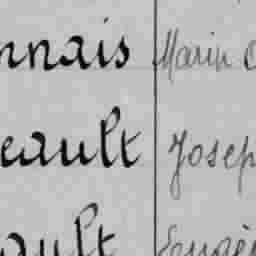 nnais Marin
eault Josep
ault Eugè